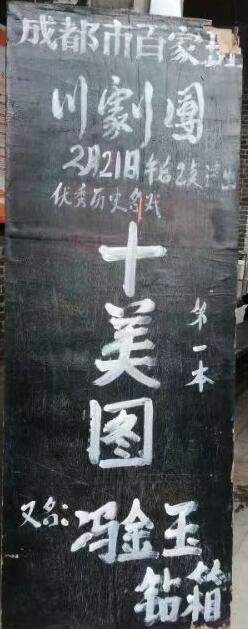 成都市百家班
川劇團
2月21日午后2点演出
优秀历史名戏
十美图
第一本
又名:冯金玉
钻箱